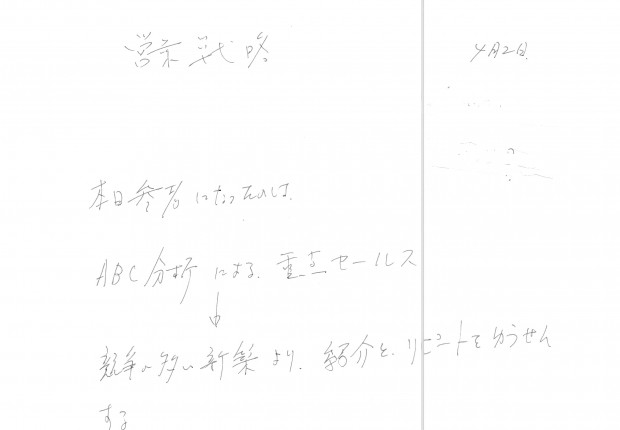 営業戦略
4月2日
本日参考になったのは、
ABC分析による、重点セールス
↓
競争の多い新築より、紹介と、リピートをゆうせん
する